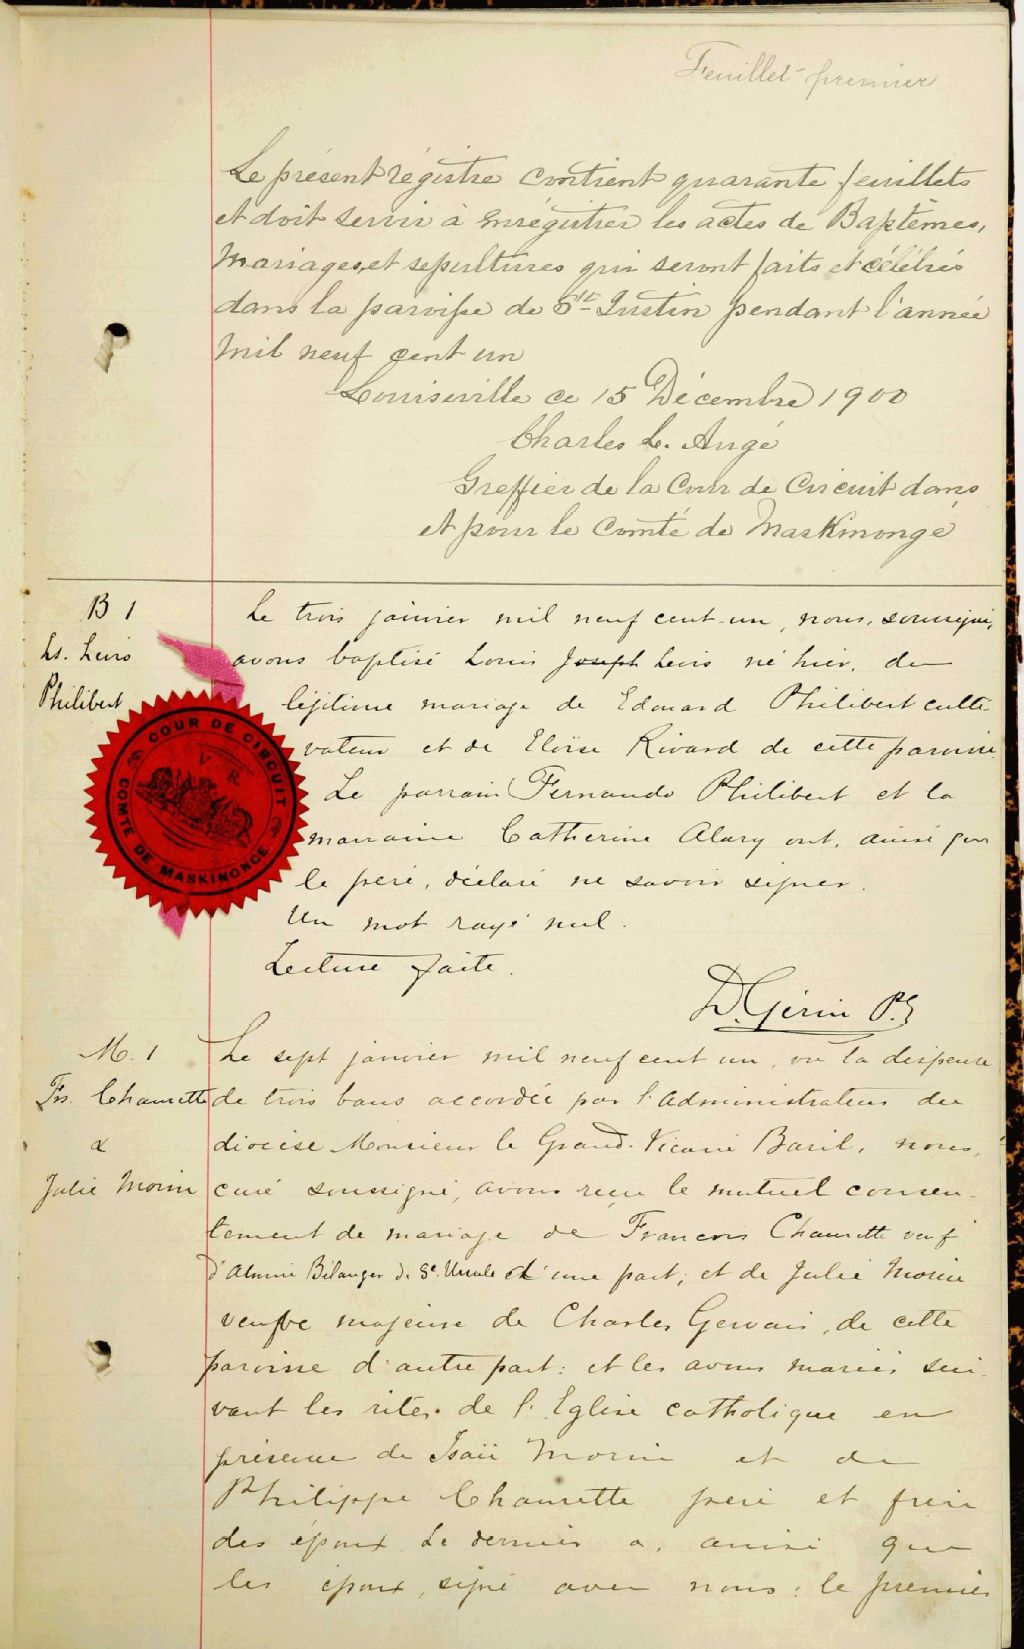 Feuillet premier
Le présent régistre contient quarante feuillets
et doit servir à enrégistrer les actes de Baptêmes,
Mariages, et sepultures qui seront faits et célébrés
dans la paroisse de St Justin pendant l'année
Mil neuf cent un
Louiseville ce 15 Décembre 1900
Charles L. Augé
Greffier de la Cour de Circuit dans
et pour le Comté de Maskinongé
B 1
Ls. Levis
Philibert
Le trois janvier mil neuf cent-un, nous, soussigné,
avons baptisé Louis Joseph Levis né hier, du
légitime mariage de Edouard Philibert culti
vateur et de Eloïse Rivard de cette paroisse.
Le parrain Fernando Philibert et la
marraine Catherine Alary ont, ainsi que
le père, déclaré ne savoir signer.
Un mot rayé nul.
Lecture faite.
D. Gérin Ptr
COUR DE CIRCUIT
V R
COMTÉ DE MASKINONGÉ
M. 1
Frs. Chaurette
&
Julie Morin
Le sept janvier mil neuf cent un, vu la dispense
de trois bans accordée par l'Administrateur du
diocèse Monsieur le Grand-Vicaire Baril, nous,
curé soussigné, avons reçu le mutuel consen-
tement de mariage de François Chaurette veuf
d'Almina Bélanger de Ste Ursule d'une part; et de Julie Morin
veuve majeure de Charles Gervais, de cette
paroisse d'autre part: et les avons mariés sui-
vant les rites de l'Eglise catholique en
présence de Isaïe Morin et de
Philippe Chaurette père et frère
des époux. Le dernier a, ainsi que
les époux, signé avec nous: le premier